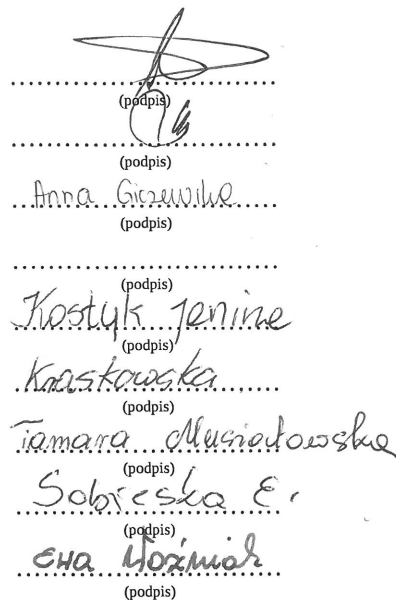 ................................................
(podpis)
................................................
(podpis)
Anna
(podpis)
................................................
(podpis)
Kostyk Janina
(podpis)
Kraskowska
(podpis)
Tamara Musiałowska
(podpis)
Sobieska E.
(podpis)
Ewa Woźniak
(podpis)